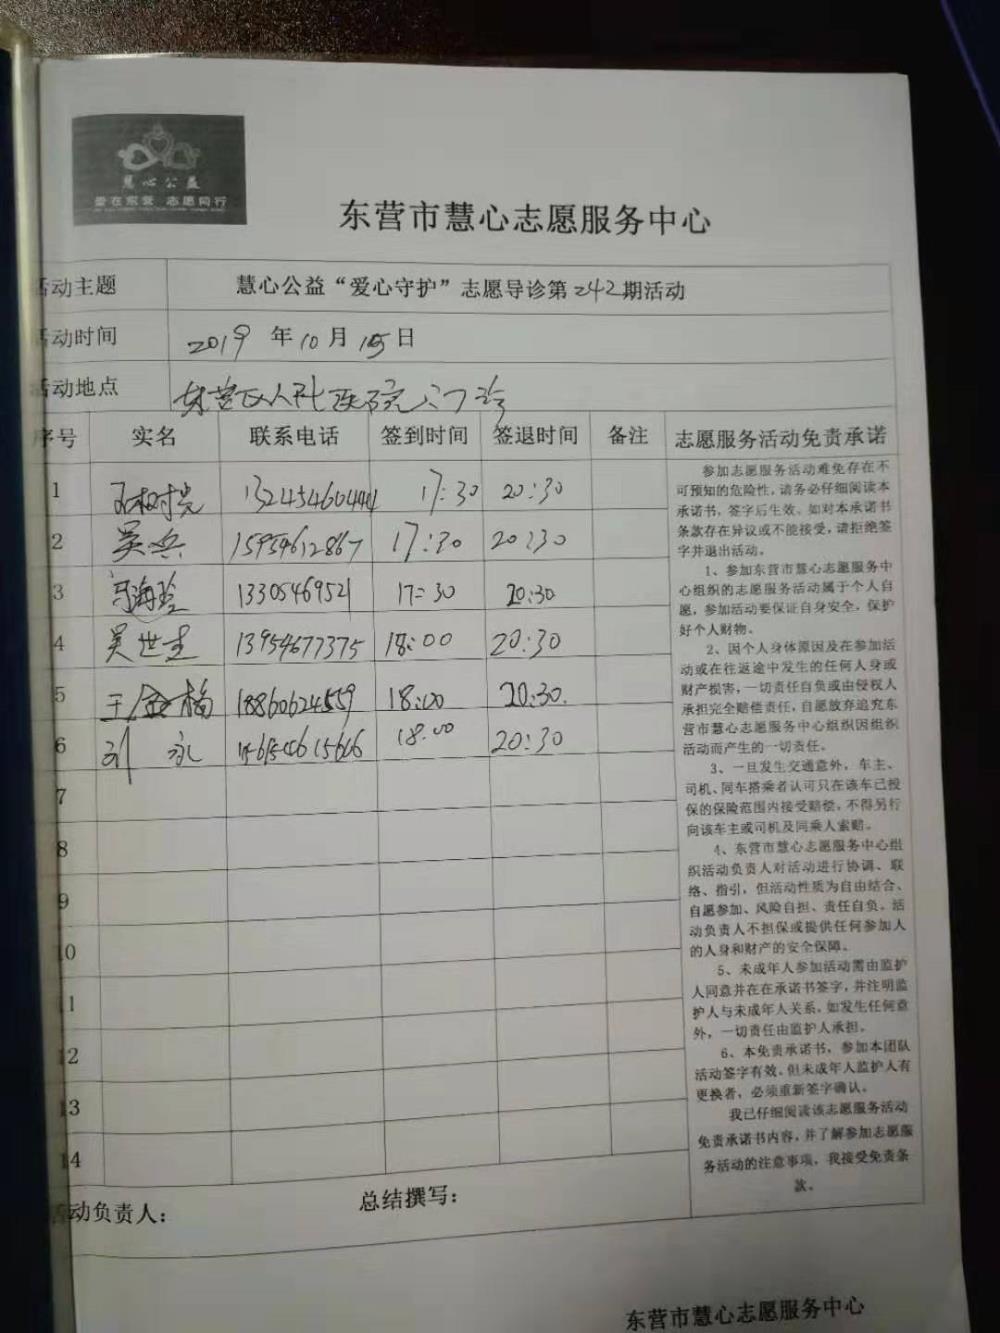 慧心公益
爱在东营 志愿同行
东营市慧心志愿服务中心
活动主题 慧心公益“爱心守护”志愿导诊第242期活动
活动时间 2019年10月15日
活动地点 东营区人民医院门诊
序号 实名 联系电话 签到时间 签退时间 备注 志愿服务活动免责承诺
1 17:30 20:30
2 吴兵 15954612867 17:30 20:30
3 马海玲 13305469521 17:30 20:30
4 吴世圭 13954677375 18:00 20:30
5 王金梅 18860624559 18:00 20:30
6 刘永 18:00 20:30
7
8
9
10
11
12
13
14
参加志愿服务活动难免存在不
可预知的危险性,请务必仔细阅读本
承诺书,签字后生效。如对本承诺书
条款存在异议或不能接受,请拒绝签
字并退出活动。
1、参加东营市慧心志愿服务中
心组织的志愿服务活动属于个人自
愿,参加活动要保证自身安全,保护
好个人财物。
2、因个人身体原因及在参加活
动或在往返途中发生的任何人身或
财产损害,一切责任自负或由侵权人
承担完全赔偿责任,自愿放弃追究东
营市慧心志愿服务中心组织因组织
活动而产生的一切责任。
3、一旦发生交通意外,车主、
司机、同车搭乘者认可只在该车已投
保的保险范围内接受赔偿,不得另行
向该车主或司机及同乘人索赔。
4、东营市慧心志愿服务中心组
织活动负责人对活动进行协调、联
络、指引,但活动性质为自由结合、
自愿参加、风险自担、责任自负。活
动负责人不担保或提供任何参加人
的人身和财产的安全保障。
5、未成年人参加活动需由监护
人同意并在在承诺书签字,并注明监
护人与未成年人关系,如发生任何意
外,一切责任由监护人承担。
6、本免责承诺书,参加本团队
活动签字有效。但未成年人监护人有
更换者,必须重新签字确认。
我已仔细阅读该志愿服务活动
免责承诺书内容,并了解参加志愿服
务活动的注意事项,我接受免责条
款。
活动负责人: 总结撰写:
东营市慧心志愿服务中心